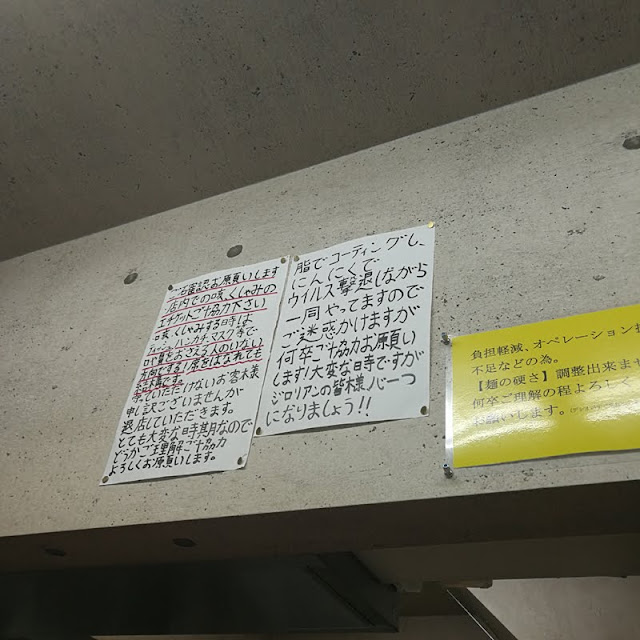 ご確認お願いします
店内での咳、くしゃみの
エチケットご協力下さい
咳、くしゃみする時は、
ティッシュ、ハンカチ、マスク等で
口や鼻をおさえる人のいない
守っていただけないお客様
申し訳ございませんが
退店していただきます。
とても大変な時期なので
どうかご理解ご協力
よろしくお願いします。
脂でコーティングし、
にんにくで
ウイルス撃退しながら
一同やってますので
ご迷惑かけますが
何卒ご協力お願い
します!大変な日時ですが
ジロリアンの皆様、心一つ
になりましょう!!
負担軽減、オペレーション
不足などの為。
【麺の硬さ】調整出来ま
何卒ご理解の程よろしく
お願いします。